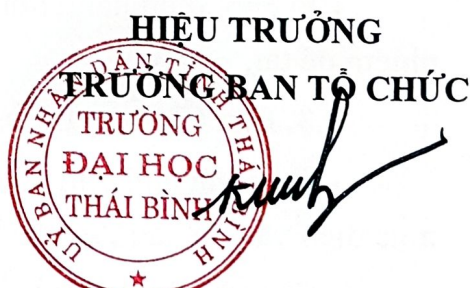 HIỆU TRƯỞNG
TRƯỞNG BAN TỔ CHỨC
ỦY BAN NHÂN DÂN TỈNH THÁI BÌNH
TRƯỜNG
ĐẠI HỌC
THÁI BÌNH